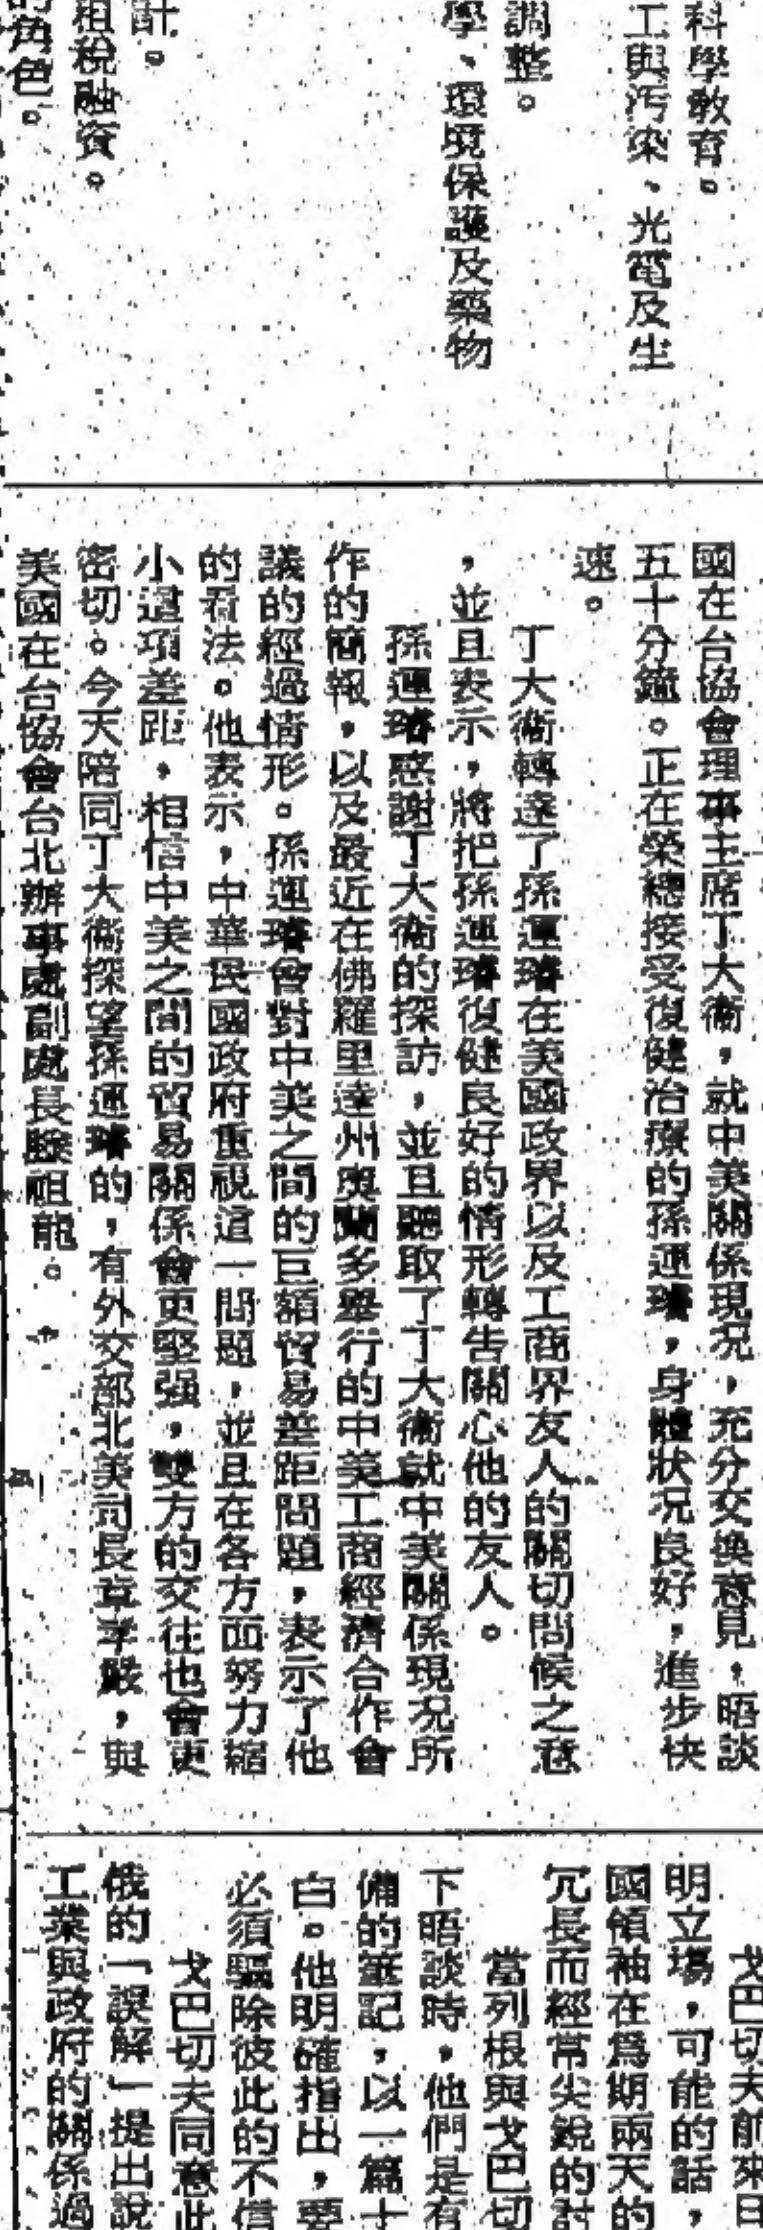 科學教育。
工與污染、光電及生
調整。
學、環境保護及藥物
計。
租稅融資。
的角色。
國在台協會理事主席丁大衞，就中美關係現況，充分交換意見，晤談
五十分鐘。正在榮總接受復健治療的孫運璿，身體狀况良好，進步快
速。
丁大衞轉達了孫運璿在美國政界以及工商界友人的關切問候之意
，並且表示，將把孫運璿復健良好的情形轉告關心他的友人。
孫運璿感謝丁大衞的探訪，並且聽取了丁大衞就中美關係現况所
作的簡報，以及最近在佛羅里達州奧蘭多舉行的中美工商經濟合作會
議的經過情形。孫運璿曾對中美之間的巨額貿易差距問題，表示了他
的看法。他表示，中華民國政府重視這一問題，並且在各方面努力縮
小這項差距，相信中美之間的貿易關係會更堅强，雙方的交往也會更
密切。今天陪同丁大衞探望孫運璿的，有外交部北美司長章孝嚴，與
美國在台協會台北辦事處副處長滕祖龍。
戈巴切夫前來日
明立場，可能的話，
國領袖在爲期兩天的
冗長而經常尖銳的討
當列根與戈巴切
下晤談時，他們是有
備的筆記，以一篇十
白。他明確指出，要
必須驅除彼此的不信
戈巴切夫同意此
俄的「誤解」提出說
工業與政府的關係過